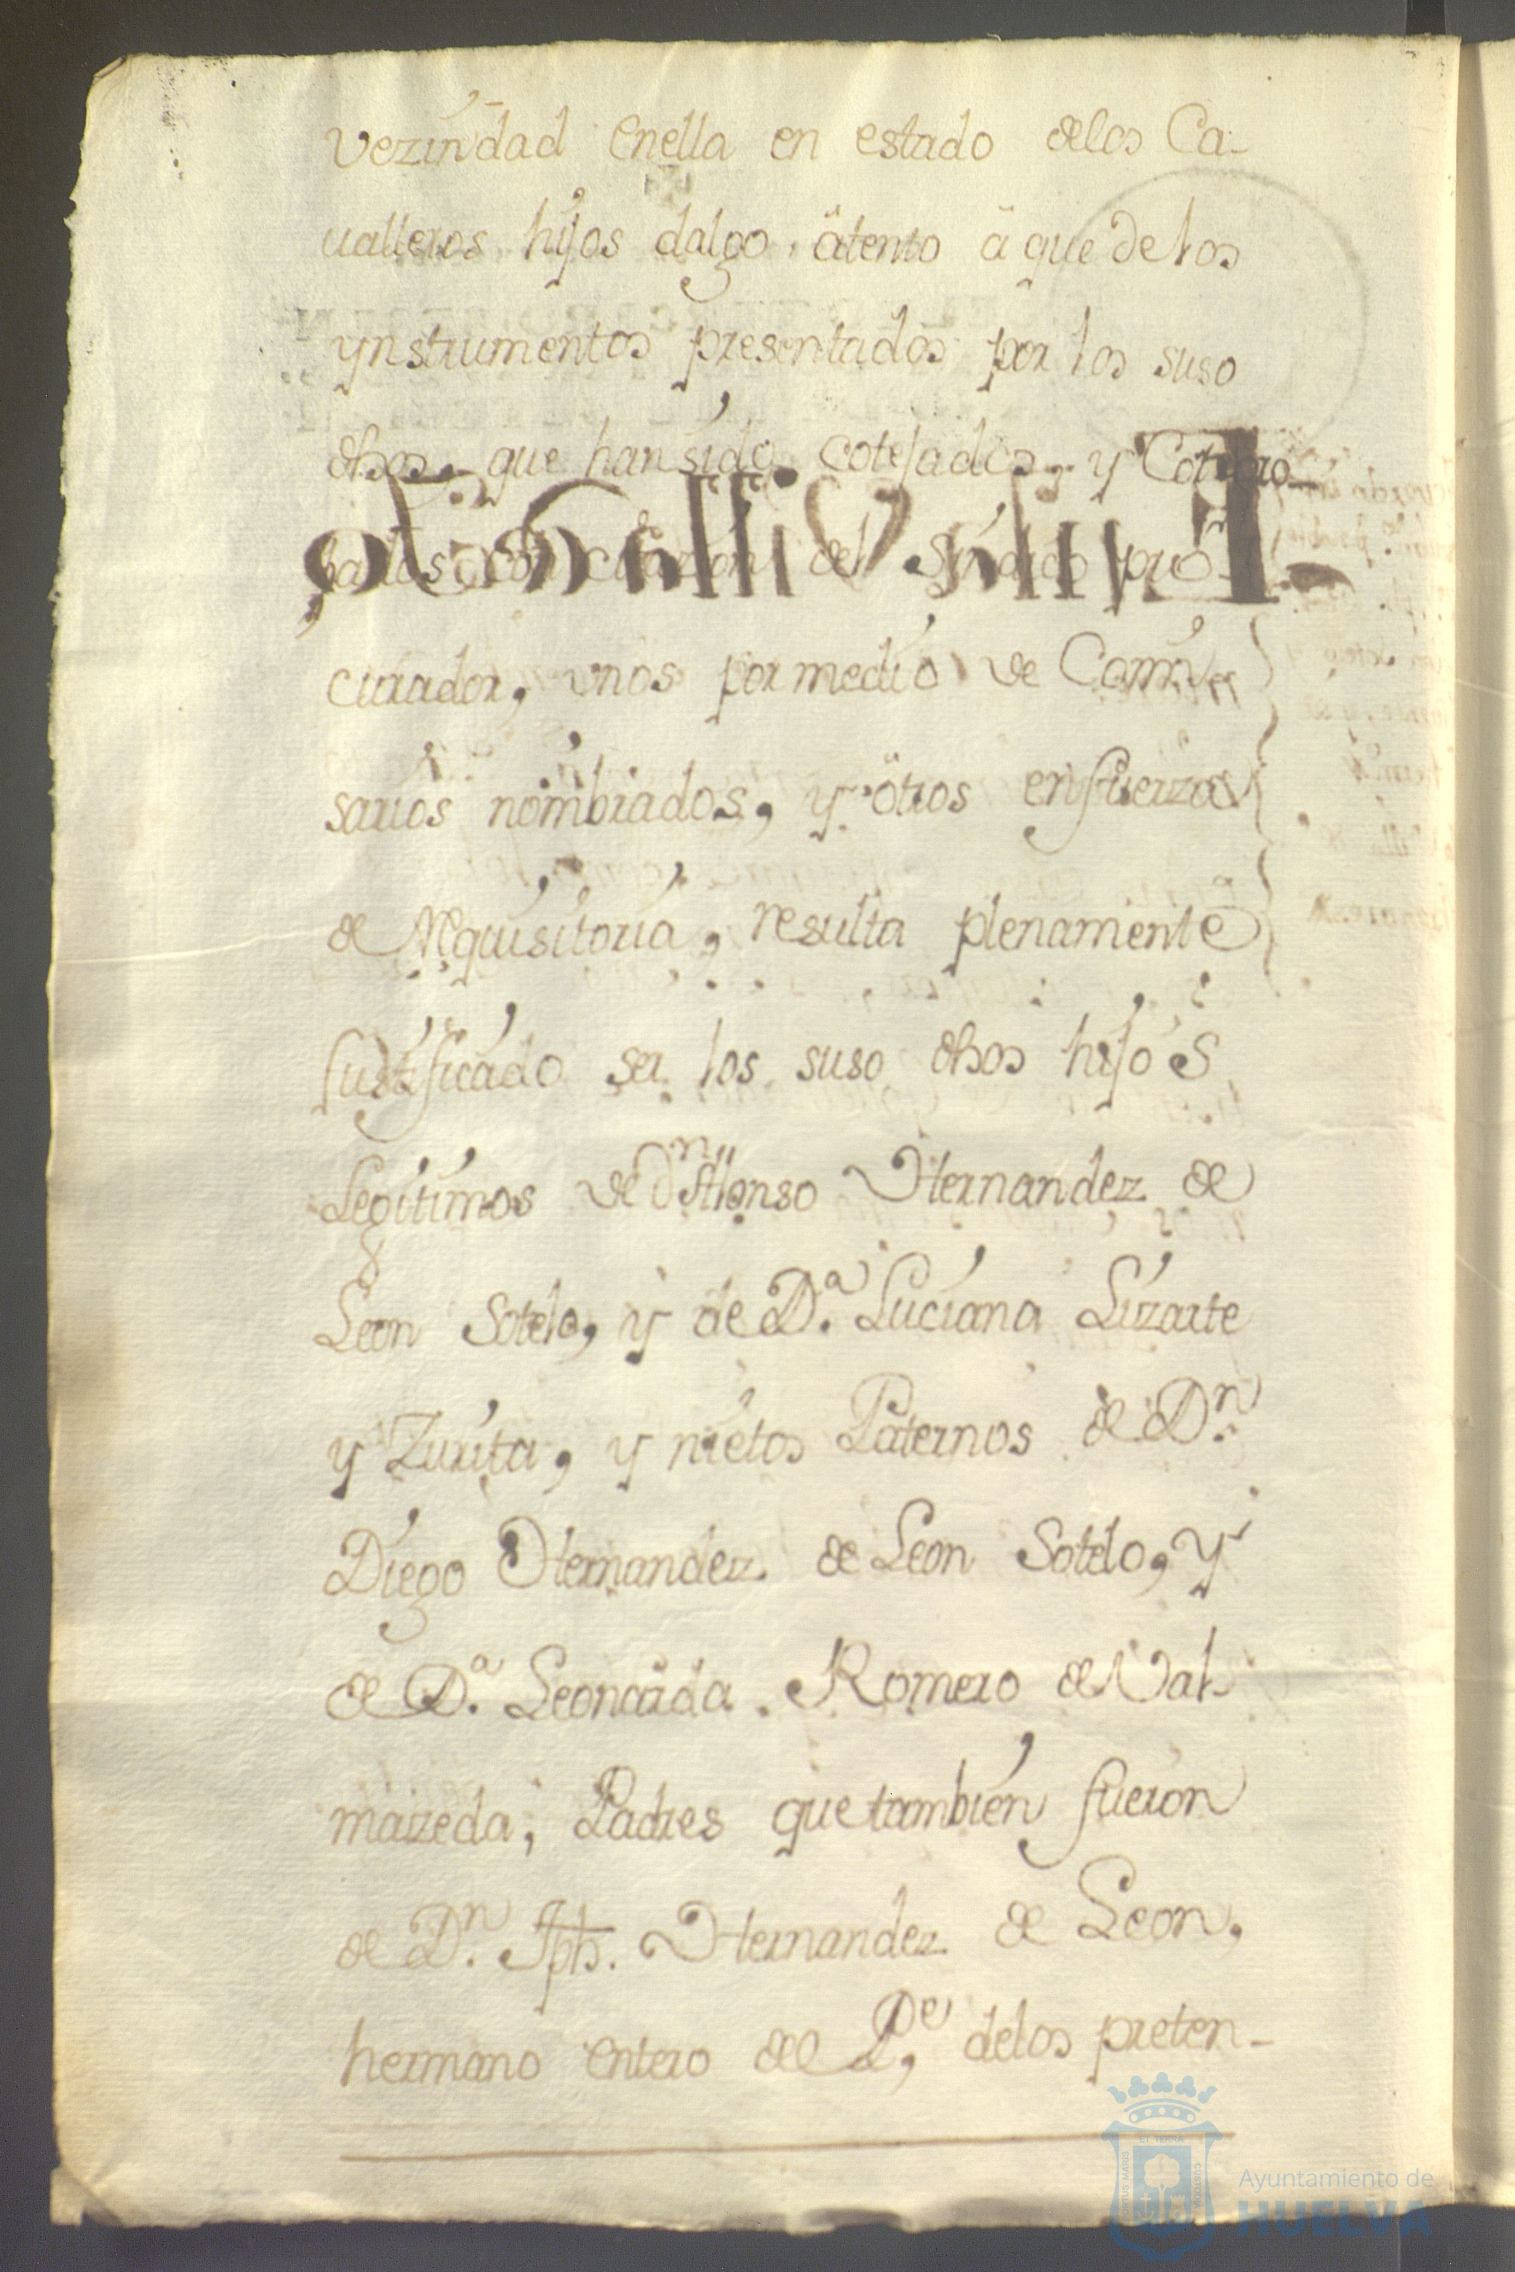 vezindad enella en estado delos Ca-
ualleros hijos dalgo, atento a que de los
ynstrumentos presentados por los suso
dhos, que han sido cotejados, y Compro-
bados con citazion del Sindico pro-
curador, vnos por medio de Comi-
sarios nombrados, y otros en fuerza
de Requisitoria, resulta plenamente
Justificado ser los suso dhos hijos
Legitimos de Dn Alonso Hernandez de
Leon Sotelo, y de D.ª Luciana Lizarte
y Zurita, y nietos Paternos de Dn.
Diego Hernandez de Leon Sotelo, y
de D.ª Leonarda Romero de Val-
mazeda; Padres que tambien fueron
de Dn. Jph. Hernandez de Leon,
hermano entero del Pe, delos preten-
Ayuntamiento de
HUELVA